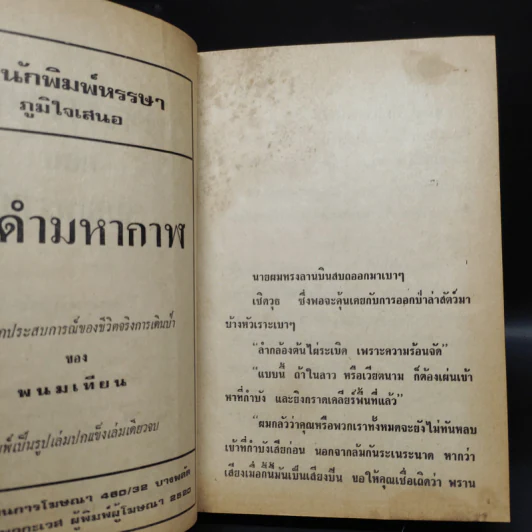 นักพิมพ์หรรษา
ภูมิใจเสนอ
ดำมหากาฬ
กประสบการณ์ของชีวิตจริงการเดินป่า
ของ
พนมเทียน
พ์เป็นรูปเล่มปกแข็งเล่มเดียวจบ
นการโฆษณา 460/32 บางพลัด
ผู้พิมพ์ผู้โฆษณา 2520
นายผมทรงลานบินสบถออกมาเบาๆ
เชิดวุธ ซึ่งพอจะคุ้นเคยกับการออกป่าล่าสัตว์มา
บ้างหัวเราะเบาๆ
"ลำกล้องต้นไผ่ระเบิด เพราะความร้อนจัด"
"แบบนี้ ถ้าในลาว หรือเวียตนาม ก็ต้องเผ่นเข้า
หาที่กำบัง และยิงกราดเคลียร์พื้นที่แล้ว"
"ผมกลัวว่าคุณหรือพวกเราทั้งหมดจะยังไม่ทันหลบ
เข้าที่กำบังเสียก่อน นอกจากล้มกันระเนระนาด หากว่า
เสียงเมื่อกี้นี้มันเป็นเสียงปืน ขอให้คุณเชื่อเถิดว่า พราน